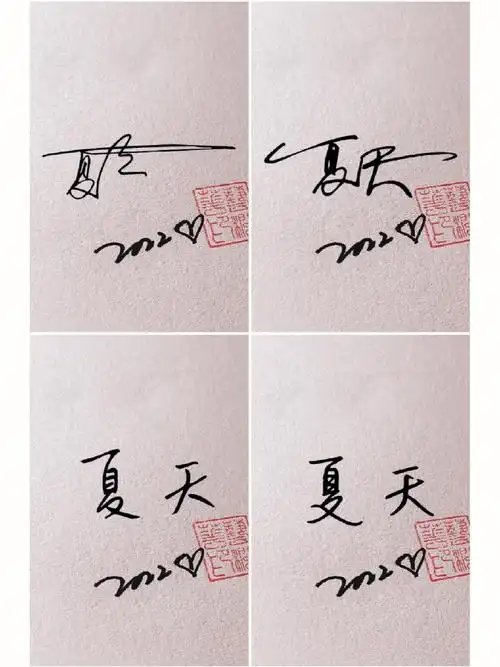 夏天
2022♡
夏天
2022♡
夏天
2022♡
夏天
2022♡